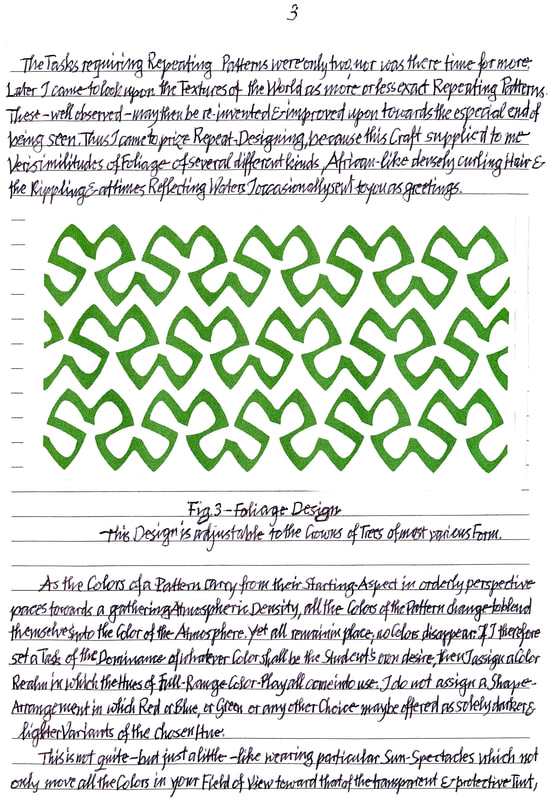 3
The Tasks requiring Repeating Patterns were only two, nor was there time for more.
Later I came to look upon the Textures of the World as more or less exact Repeating Patterns.
These - well observed - may then be re-invented & improved upon towards the especial end of
being seen. Thus I came to prize Repeat-Designing, because this Craft supplied to me
Verisimilitudes of Foliage of several different kinds, African-like densely curling Hair &
the Rippling & at times Reflecting Waters I occasionally sent to you as greetings.
Fig. 3 - Foliage Design
This Design is adjustable to the Crowns of Trees of most various Form.
As the Colors of a Pattern carry from their Starting-Aspect in orderly perspective
paces towards a gathering Atmospheric Density, all the Colors of the Pattern change to blend
themselves into the Color of the Atmosphere. Yet all remain in place, no Colors disappear. If I therefore
set a Task of the Dominance of whatever Color shall be the Student's own desire, then I assign a Color
Realm in which the Hues of Full-Range Color-Play all come into use. I do not assign a Shape-
Arrangement in which Red or Blue, or Green or any other Choice may be offered as solely darker &
lighter Variants of the chosen Hue.
This is not quite - but just a little - like wearing particular Sun-Spectacles which not
only move all the Colors in your Field of View toward that of the transparent & protective Tint,